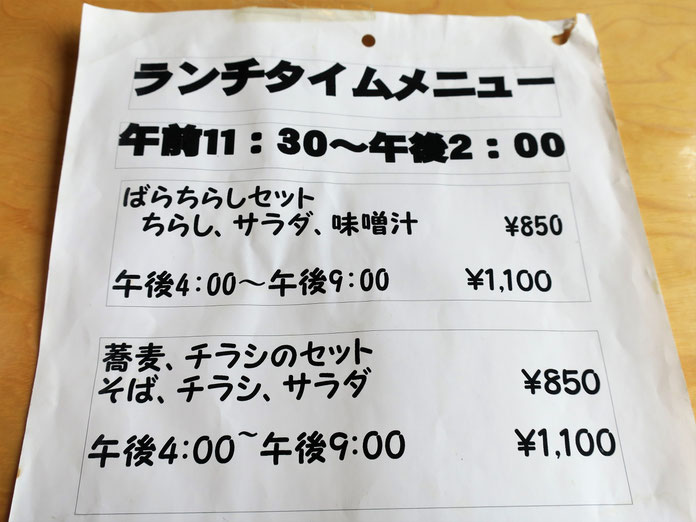 ランチタイムメニュー
午前11：30～午後2：00
ばらちらしセット
ちらし、サラダ、味噌汁 ¥850
午後4:00～午後9:00 ¥1,100
蕎麦、チラシのセット
そば、チラシ、サラダ ¥850
午後4:00~午後9:00 ¥1,100